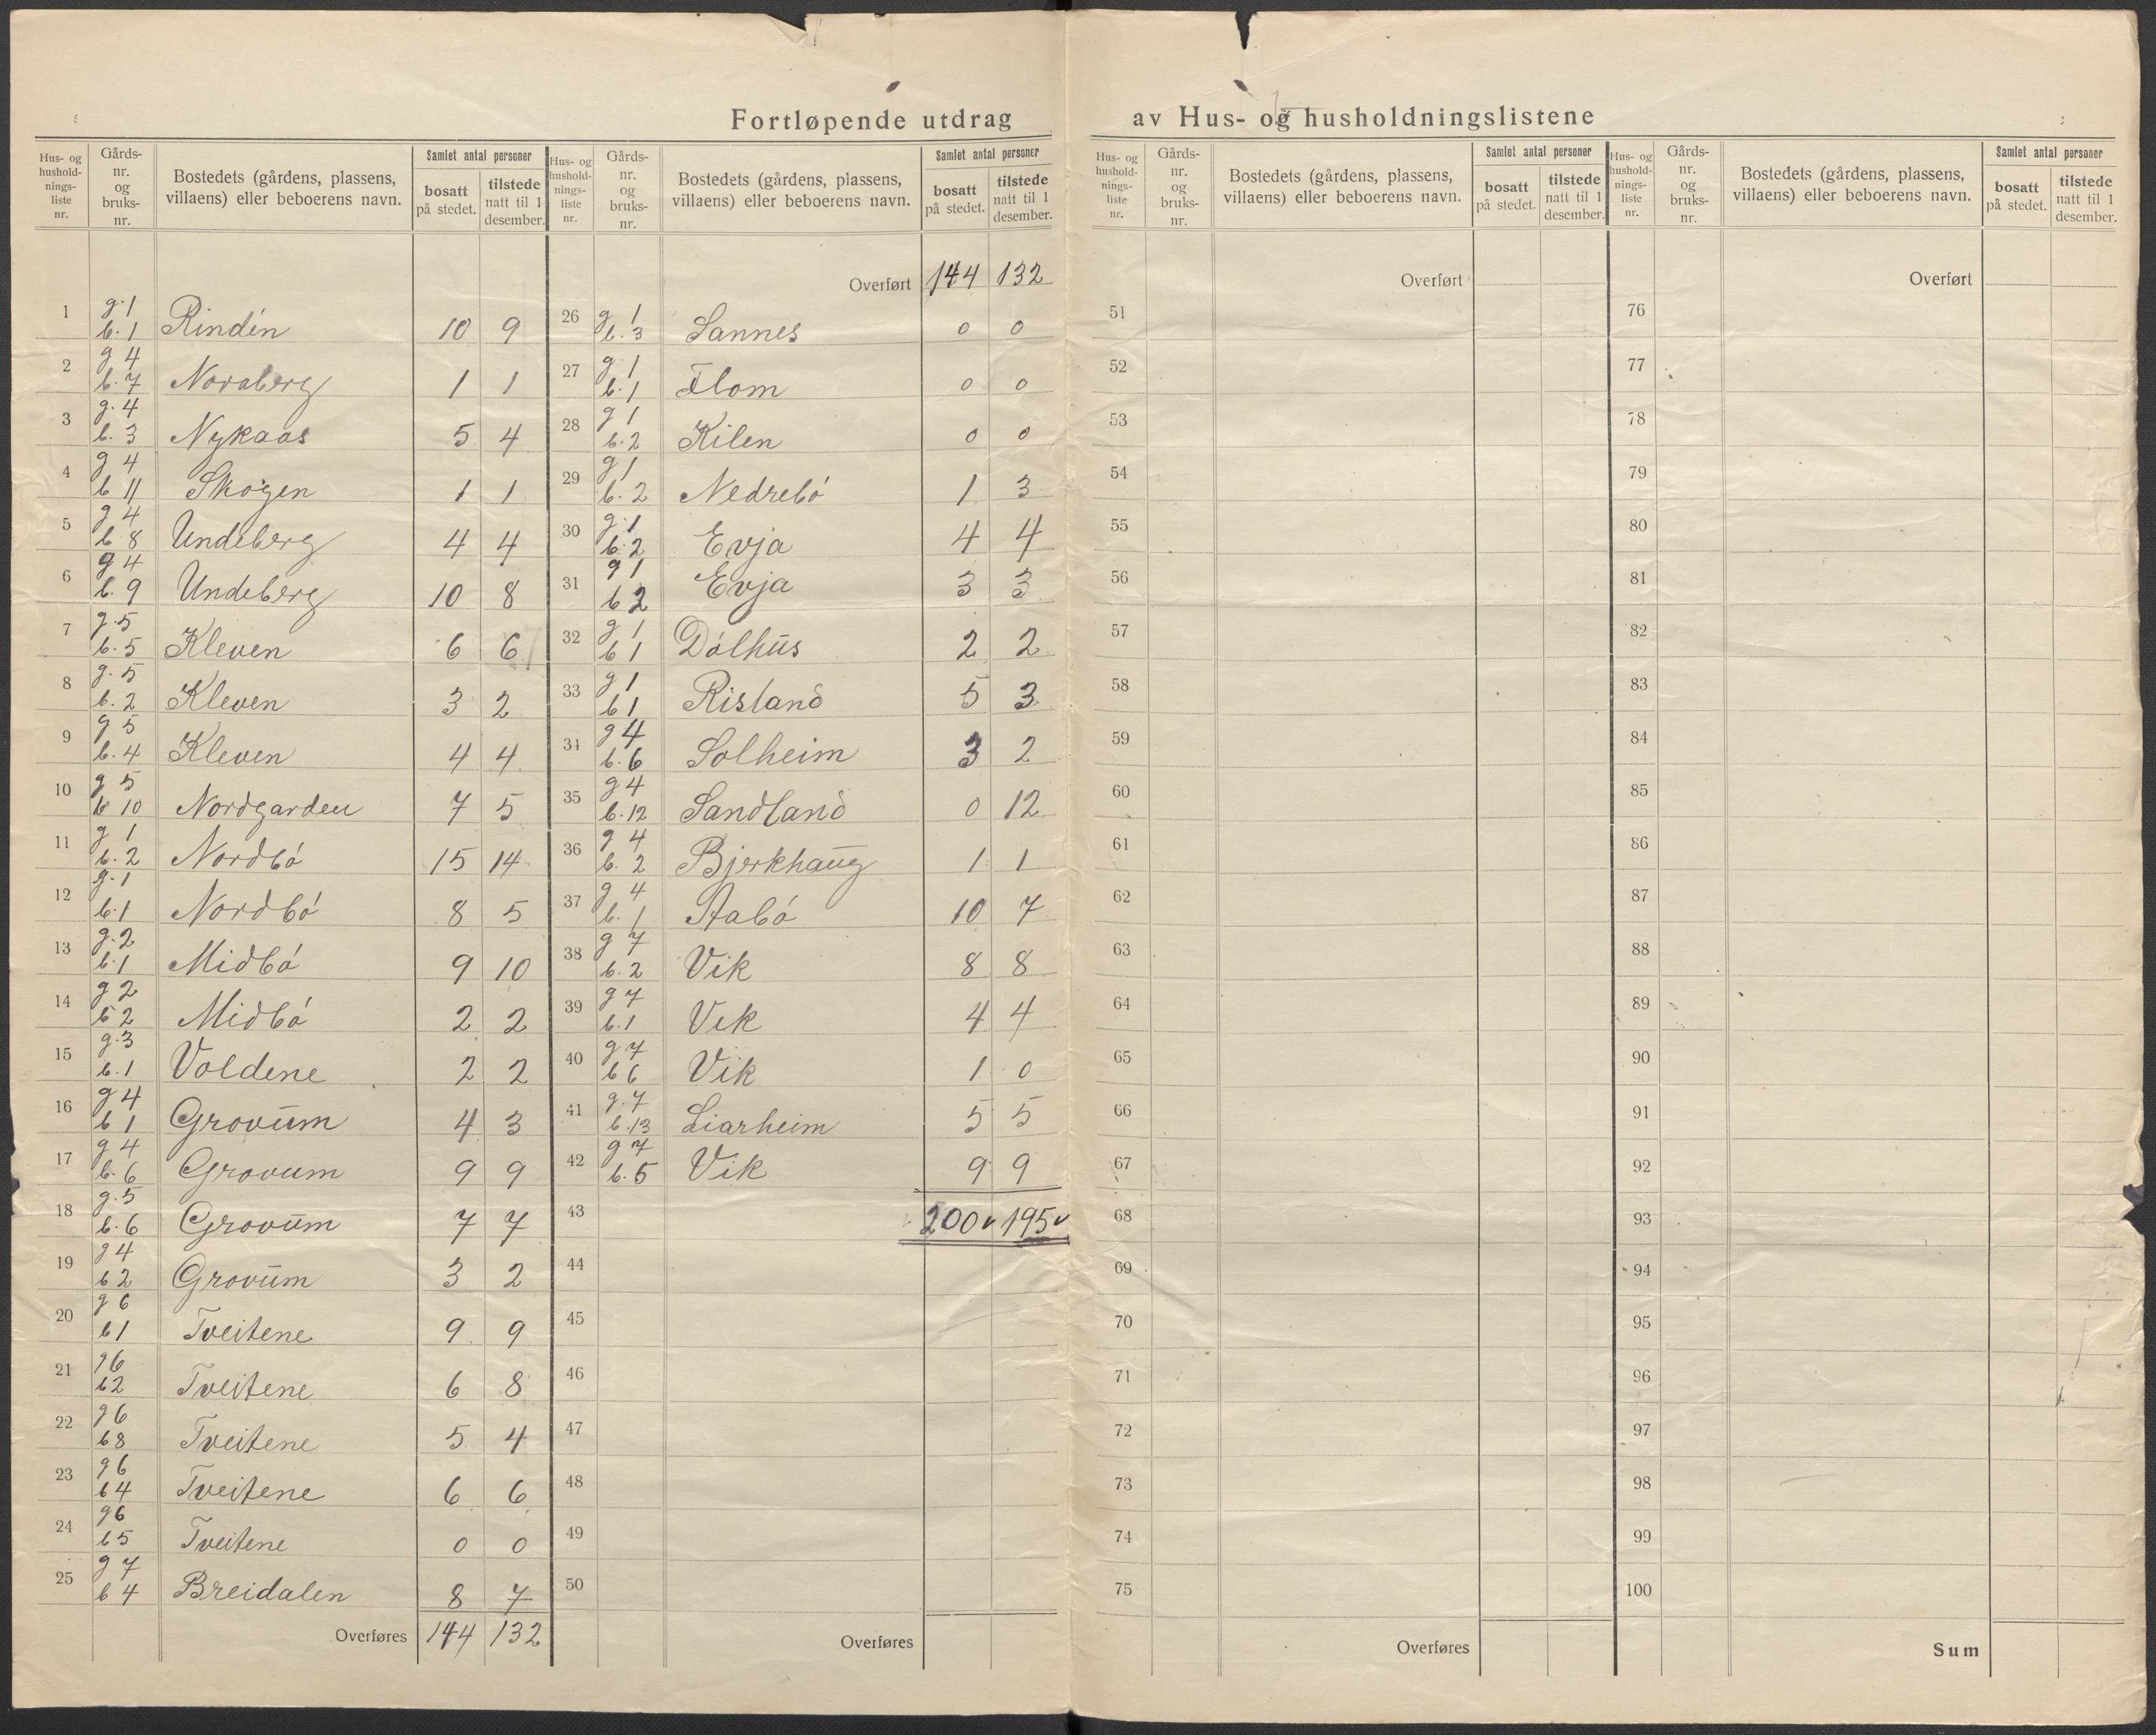 Fortløpende utdrag av Hus- og husholdningslistene
Hus- og hushold-nings-liste nr. | Gårds-nr. og bruks-nr. | Bostedets (gårdens, plassens, villaens) eller beboerens navn. | Samlet antal personer | bosatt på stedet. | tilstede natt til 1 desember.
1 g. 1 b. 1 Rindin 10 9
2 g 4 b. 7 Noraberg 1 1
3 g. 4 b. 3 Nykaas 5 4
4 g 4 b 11 Skogen 1 1
5 g 4 b 8 Undeberg 4 4
6 g 4 b. 9 Undeberg 10 8
7 g. 5 b. 5 Kleven 6 6
8 g. 5 b. 2 Kleven 3 2
9 g 5 b. 4 Kleven 4 4
10 g 5 b 10 Nordgarden 7 5
11 g 1 b. 2 Nordbó 15 14
12 g. 1 b. 1 Nordbó 8 5
13 g. 2 b. 1 Midbó 9 10
14 g 2 b 2 Midbó 2 2
15 g. 3 b. 1 Voldene 2 2
16 g 4 b 1 Grovum 4 3
17 g 4 b. 6 Grovum 9 9
18 g. 5 b. 6 Grovum 7 7
19 g 4 b 2 Grovum 3 2
20 g 6 b 1 Tveitene 9 9
21 g 6 b 2 Tveitene 6 8
22 g 6 b 8 Tveitene 5 4
23 g 6 b 4 Tveitene 6 6
24 g 6 b 5 Tveitene 0 0
25 g 7 b 4 Breidalen 8 7
Overføres 144 132
Hus- og hushold-nings-liste nr. | Gårds-nr. og bruks-nr. | Bostedets (gårdens, plassens, villaens) eller beboerens navn. | Samlet antal personer | bosatt på stedet. | tilstede natt til 1 desember.
Overført 144 132
26 g 1 b. 3 Sannes 0 0
27 g 1 b. 1 Flom 0 0
28 g 1 b. 2 Kilen 0 0
29 g 1 b. 2 Nedrebó 1 3
30 g. 1 b. 2 Evja 4 4
31 g 1 b 2 Evja 3 3
32 g 1 b 1 Dólhus 2 2
33 g 1 b 1 Risland 5 3
34 g 4 b. 6 Solheim 3 2
35 g 4 b. 12 Sandland 0 12
36 g 4 b. 2 Bjerkhaug 1 1
37 g 4 b. 1 Aabó 10 7
38 g 7 b. 2 Vik 8 8
39 g 7 b. 1 Vik 4 4
40 g 7 b 6 Vik 1 0
41 g. 7 b. 13 Liarheim 5 5
42 g 7 b. 5 Vik 9 9
43 200 v 195 v
44
45
46
47
48
49
50
Overføres
Hus- og hushold-nings-liste nr. | Gårds-nr. og bruks-nr. | Bostedets (gårdens, plassens, villaens) eller beboerens navn. | Samlet antal personer | bosatt på stedet. | tilstede natt til 1 desember.
Overført
51
52
53
54
55
56
57
58
59
60
61
62
63
64
65
66
67
68
69
70
71
72
73
74
75
Overføres
Hus- og hushold-nings-liste nr. | Gårds-nr. og bruks-nr. | Bostedets (gårdens, plassens, villaens) eller beboerens navn. | Samlet antal personer | bosatt på stedet. | tilstede natt til 1 desember.
Overført
76
77
78
79
80
81
82
83
84
85
86
87
88
89
90
91
92
93
94
95
96
97
98
99
100
Sum